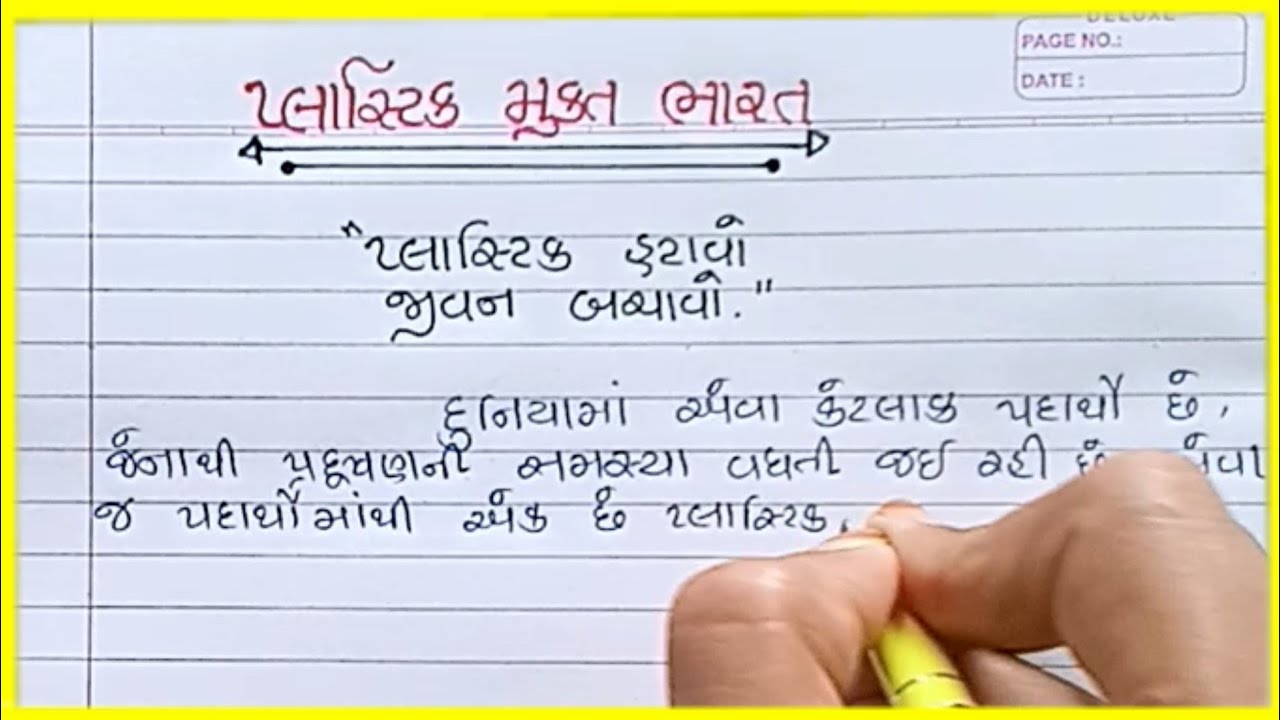 DELUXE
PAGE NO.:
DATE :
પ્લાસ્ટિક મુક્ત ભારત
"પ્લાસ્ટિક હટાવો
જીવન બચાવો."
દુનિયામાં એવા કેટલાક પદાર્થો છે,
જેનાથી પ્રદૂષણની સમસ્યા વધતી જઈ રહી છે
જ પદાર્થોમાંથી એક છે પ્લાસ્ટિક.